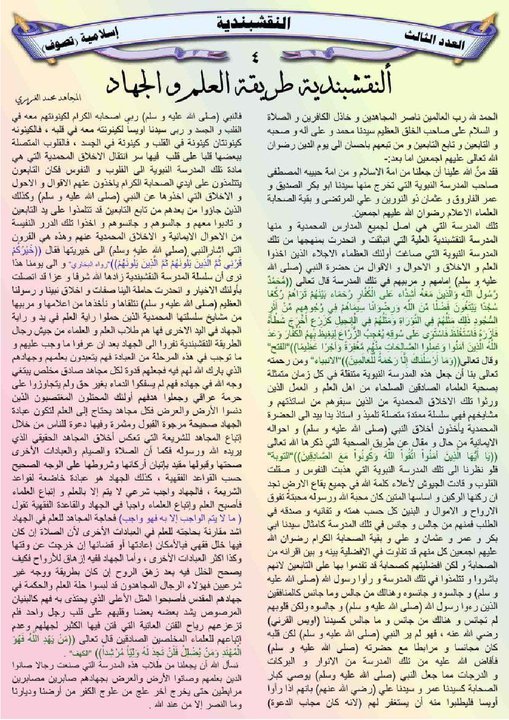 النقشبندية
العدد الثالث
إسلامية (تصوف)
٤
ألنقشبندية طريقة العلم و الجهاد
الحمد لله رب العالمين ناصر المجاهدين و خاذل الكافرين و الصلاة
و السلام على صاحب الخلق العظيم سيدنا محمد و على آله و صحبه
التابعين و تابع التابعين و من تبعهم باحسان الى يوم الدين رضوان
الله تعالى عليهم اجمعين اما بعد:-
فقد منَّ الله علينا أن جعلنا من امة الاسلام و من امة حبيبه المصطفى
صاحب المدرسة النبوية التي تخرج منها سيدنا ابو بكر الصديق و
عمر الفاروق و عثمان ذو النورين و علي المرتضى و بقية الصحابة
العلماء الاعلام رضوان الله عليهم اجمعين.
تلك المدرسة التي هي اصل لجميع المدارس المحمدية و منها
المدرسة النقشبندية العلية التي انبثقت و انحدرت بمنهجها من تلك
المدرسة النبوية التي صاغت أولئك العظماء الاجلاء الذين اخذوا
العلم و الاخلاق و الاحوال و الاقوال من حضرة النبي (صلى الله
عليه و سلم) امامهم و مربيهم في تلك المدرسة قال تعالى ((مُحَمَّدٌ
رَسُولُ اللَّهِ وَالَّذِينَ مَعَهُ أَشِدَّاءُ عَلَى الْكُفَّارِ رُحَمَاءُ بَيْنَهُمْ تَرَاهُمْ رُكَّعًا
سُجَّدًا يَبْتَغُونَ فَضْلًا مِنَ اللَّهِ وَرِضْوَانًا سِيمَاهُمْ فِي وُجُوهِهِمْ مِنْ أَثَرِ
السُّجُودِ ذَلِكَ مَثَلُهُمْ فِي التَّوْرَاةِ وَمَثَلُهُمْ فِي الْإِنْجِيلِ كَزَرْعٍ أَخْرَجَ شَطْأَهُ
فَآزَرَهُ فَاسْتَغْلَظَ فَاسْتَوَى عَلَى سُوقِهِ يُعْجِبُ الزُّرَّاعَ لِيَغِيظَ بِهِمُ الْكُفَّارَ وَعَدَ
اللَّهُ الَّذِينَ آمَنُوا وَعَمِلُوا الصَّالِحَاتِ مِنْهُمْ مَغْفِرَةً وَأَجْرًا عَظِيمًا))"الفتح"
وقال تعالى((وَمَا أَرْسَلْنَاكَ إِلَّا رَحْمَةً لِلْعَالَمِينَ))"الانبياء" ومن رحمته
تعالى بنا أن جعل هذه المدرسة النبوية متنقلة في كل زمان متمثلة
بصحبة العلماء الصادقين الصلحاء من اهل العلم و العمل الذين
ورثوا تلك الاخلاق المحمدية من الذين سبقوهم من اساتذتهم و
مشايخهم فهي سلسلة ممتدة متصلة تلميذ و استاذ يدا بيد الى الحضرة
المحمدية يأخذون أخلاق النبي (صلى الله عليه و سلم) و احواله
الايمانية من حال و مقال عن طريق الصحبة التي ذكرها الله تعالى
((يَا أَيُّهَا الَّذِينَ آمَنُوا اتَّقُوا اللَّهَ وَكُونُوا مَعَ الصَّادِقِينَ))"التوبة"
فلو نظرنا الى تلك المدرسة النبوية التي هذبت النفوس و صقلت
القلوب و قادت الجيوش لأعلاء كلمة الله في جميع بقاع الارض تجد
ان ركنها الوكين و اساسها المتين كان محبة الله ورسوله محبة تفوق
الارواح و الاموال و البنين كل حسب همته و تفانيه و صدقه في
الطلب فمنهم من جالس و جانس في تلك المدرسة كأمثال سيدنا ابي
بكر و عمر و عثمان و علي و بقية الصحابة الكرام رضوان الله
عليهم اجمعين كل منهم قد تفاوت في الافضلية بينه و بين اقرانه من
الصحابة و لكن افضليتهم كصحابة قد تقدموا بها على التابعين لانهم
باشروا و تتلمذوا في تلك المدرسة و رأوا رسول الله (صلى الله عليه
و سلم) و جالسوه و جانسوه وهنالك من جالس وما جانس كالمنافقين
الذين رءوا رسول الله (صلى الله عليه و سلم) و جالسوه ولكن قلوبهم
لم تجانس و هنالك من جانس و ما جالس كسيدنا (اويس القرني)
رضي الله عنه ، فهو لم ير النبي (صلى الله عليه و سلم) لكن قلبه
كان مجانسا و مرابطا مع حضرته (صلى الله عليه و سلم)
فأفاض الله عليه من تلك المدرسة من الانوار و البركات
و الدرجات مما جعل النبي (صلى الله عليه وسلم) يوصي كبار
الصحابة كسيدنا عمر و سيدنا علي (رضي الله عنهم) بانهم اذا رأوا
أويسا فليطلبوا منه أن يستغفر لهم (لانه كان مجاب الدعوة)
المجاهد محمد
فالنبي (صلى الله عليه و سلم) ربى اصحابه الكرام لكينونتهم معه في
القلب و الجسد و ربى سيدنا اويسا لكينونته معه في قلبه ، فالكينونه
كينونتان كينونة في القلب و كينونة في الجسد ، فالقلوب المتصلة
ببعضها قلبا على قلب فيها سر انتقال الاخلاق المحمدية التي هي
مادة تلك المدرسة النبوية الى القلوب و النفوس فكان التابعون
يتتلمذون على ايدي الصحابة الكرام ياخذون عنهم الاقوال و الاحوال
و الاخلاق التي اخذوها عن النبي (صلى الله عليه و سلم) وكذلك
الذين جاؤوا من بعدهم من تابع التابعين قد تتلمذوا على يد التابعين
و تادبوا معهم و جالسوهم و جانسوهم و اخذوا تلك الدرر النفيسة
من الاحوال الايمانية و الاخلاق المحمدية عنهم وهذه هي القرون
التي اشار النبي (صلى الله عليه و سلم) الى خيريتها فقال ((خَيْرُكُمْ
قَرْنِي ثُمَّ الَّذِينَ يَلُونَهُمْ ثُمَّ الَّذِينَ يَلُونَهُمْ))"رواه البخاري" و الى يومنا هذا
نرى أن سلسلة المدرسة النقشبندية زادها الله شرفا و عزا قد اتصلت
بأولئك الاخيار و انحدرت حاملة الينا صفات و اخلاق نبينا و رسولنا
العظيم (صلى الله عليه و سلم) نتلقاها و نأخذها من اعلامها و مربيها
من مشايخ سلسلتها المحمدية الذين حملوا راية العلم في يد و راية
الجهاد في اليد الاخرى فها هم طلاب العلم و العلماء من جيش رجال
الطريقة النقشبندية نفروا الى الجهاد بعد ان عرفوا ما وجب عليهم و
ما توجب في هذه المرحلة من العبادة فهم يتعبدون بعلمهم وجهادهم
الذي بارك الله لهم فيه فجعلهم قدوة لكل مجاهد صادق مخلص يبتغي
وجه الله في جهاده فهم لم يسفكوا الدماء بغير حق ولم يتجاوزوا على
حرمة عراقي وجعلوا هدفهم أولئك المحتلون المغتصبون الذين
دنسوا الأرض والعرض فكل مجاهد يحتاج إلى العلم لتكون عبادة
الجهاد صحيحة مرجوة القبول ومثمرة وفيها دعوة للناس من خلال
إتباع المجاهد للشريعة التي تعكس أخلاق المجاهد الحقيقي الذي
يريده الله ورسوله فكما أن الصلاة والصيام والعبادات الأخرى
صحتها وقبولها مقيد بإتيان أركانها وشروطها على الوجه الصحيح
حسب القواعد الفقهية ، كذلك الجهاد هو عبادة خاضعة لقواعد
الشريعة ، فالجهاد واجب شرعي لا يتم إلا بالعلم و إتباع العلماء
فأصبح العلم وإتباع العلماء واجبا في الجهاد والقاعدة الفقهية تقول
( ما لا يتم الواجب إلا به فهو واجب ) فحاجة المجاهد للعلم في الجهاد
اشد مقارنة بحاجته للعلم في العبادات الأخرى لأن الصلاة إن كان
فيها خلل فقهي فبالأمكان إعادتها أو قضائها إن خرجت عن وقتها
وكذا اكثر العبادات الأخرى ، وأما الجهاد ففيه إزهاق للأرواح فكيف
يصحح الخلل فيه بعد زهق الروح إن كان بطريقة ووجه غير
شرعيين فهؤلاء الرجال المجاهدون قد لبسوا حلة العلم والحكمة في
جهادهم المقدس فأصبحوا المثل الأعلى الذي يحتذى به فهم كالبنيان
المرصوص يشد بعضه بعضا وقلبهم على قلب رجل واحد فلم
تزعزعهم رياح الفتن العاتية التي فتن فيها الكثير لجهلهم وعدم
إتباعهم للعلماء المخلصين الصادقين قال تعالى ((مَنْ يَهْدِ اللَّهُ فَهُوَ
الْمُهْتَدِ وَمَنْ يُضْلِلْ فَلَنْ تَجِدَ لَهُ وَلِيًّا مُرْشِدًا))"الكهف"
نسأل الله أن يجعلنا من طلاب هذه المدرسة التي صنعت رجالا صانوا
الدين بعلمهم وصانوا الأرض والعرض بجهادهم صابرين مصابرين
مرابطين حتى يخرج أخر علج من علوج الكفر من أرضنا وديارنا
وما النصر إلا من عند الله .